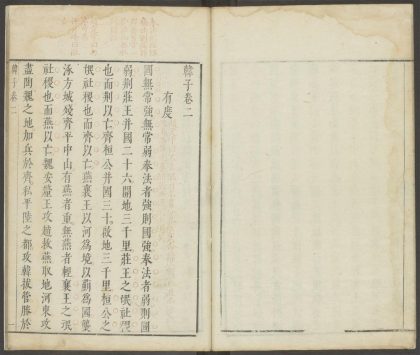 韓子卷二
有度
國無常強無常弱奉法者強則國強奉法者弱則國
弱荆莊王并國二十六開地三千里莊王之氓社稷
也而荆以亡齊桓公并國三十啟地三千里桓公之
氓社稷也而齊以亡燕襄王以河為境以薊為國襲
涿方城殘齊平中山有燕者重無燕者輕襄王之氓
社稷也而燕以亡魏安釐王攻趙救燕取地河東攻
盡陶魏之地加兵於齊私平陸之都攻韓拔管勝於
韓子卷二